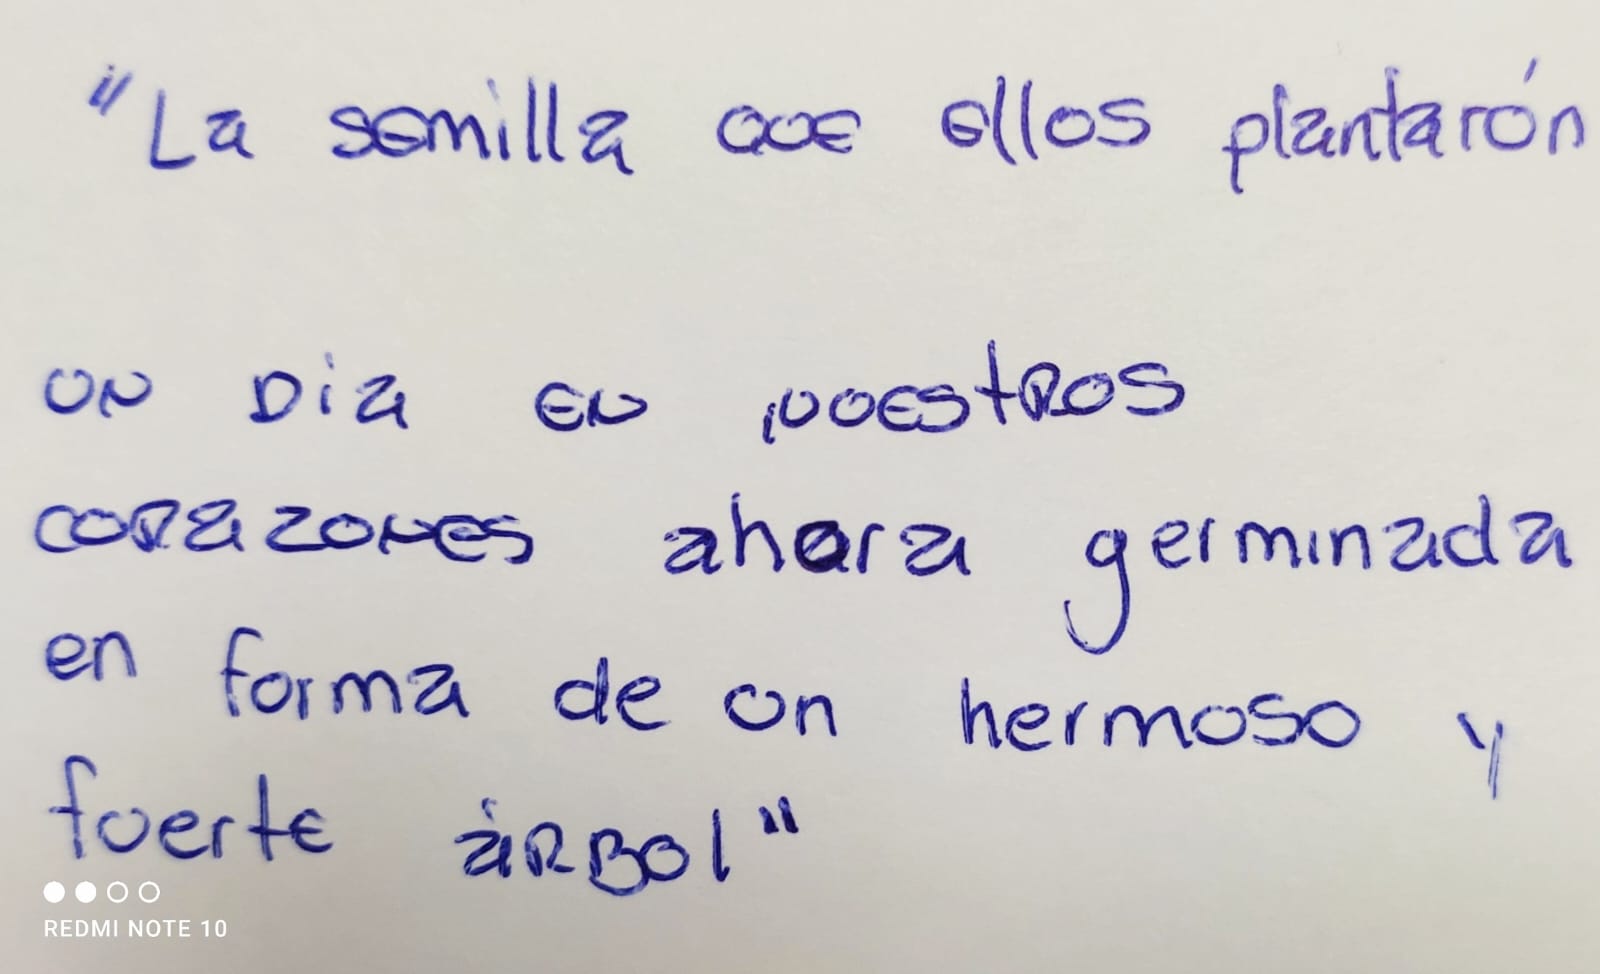 "La semilla que ellos plantarón
un Dia en nuestros
corazones ahora germinada
en forma de un hermoso y
fuerte árbol"
REDMI NOTE 10